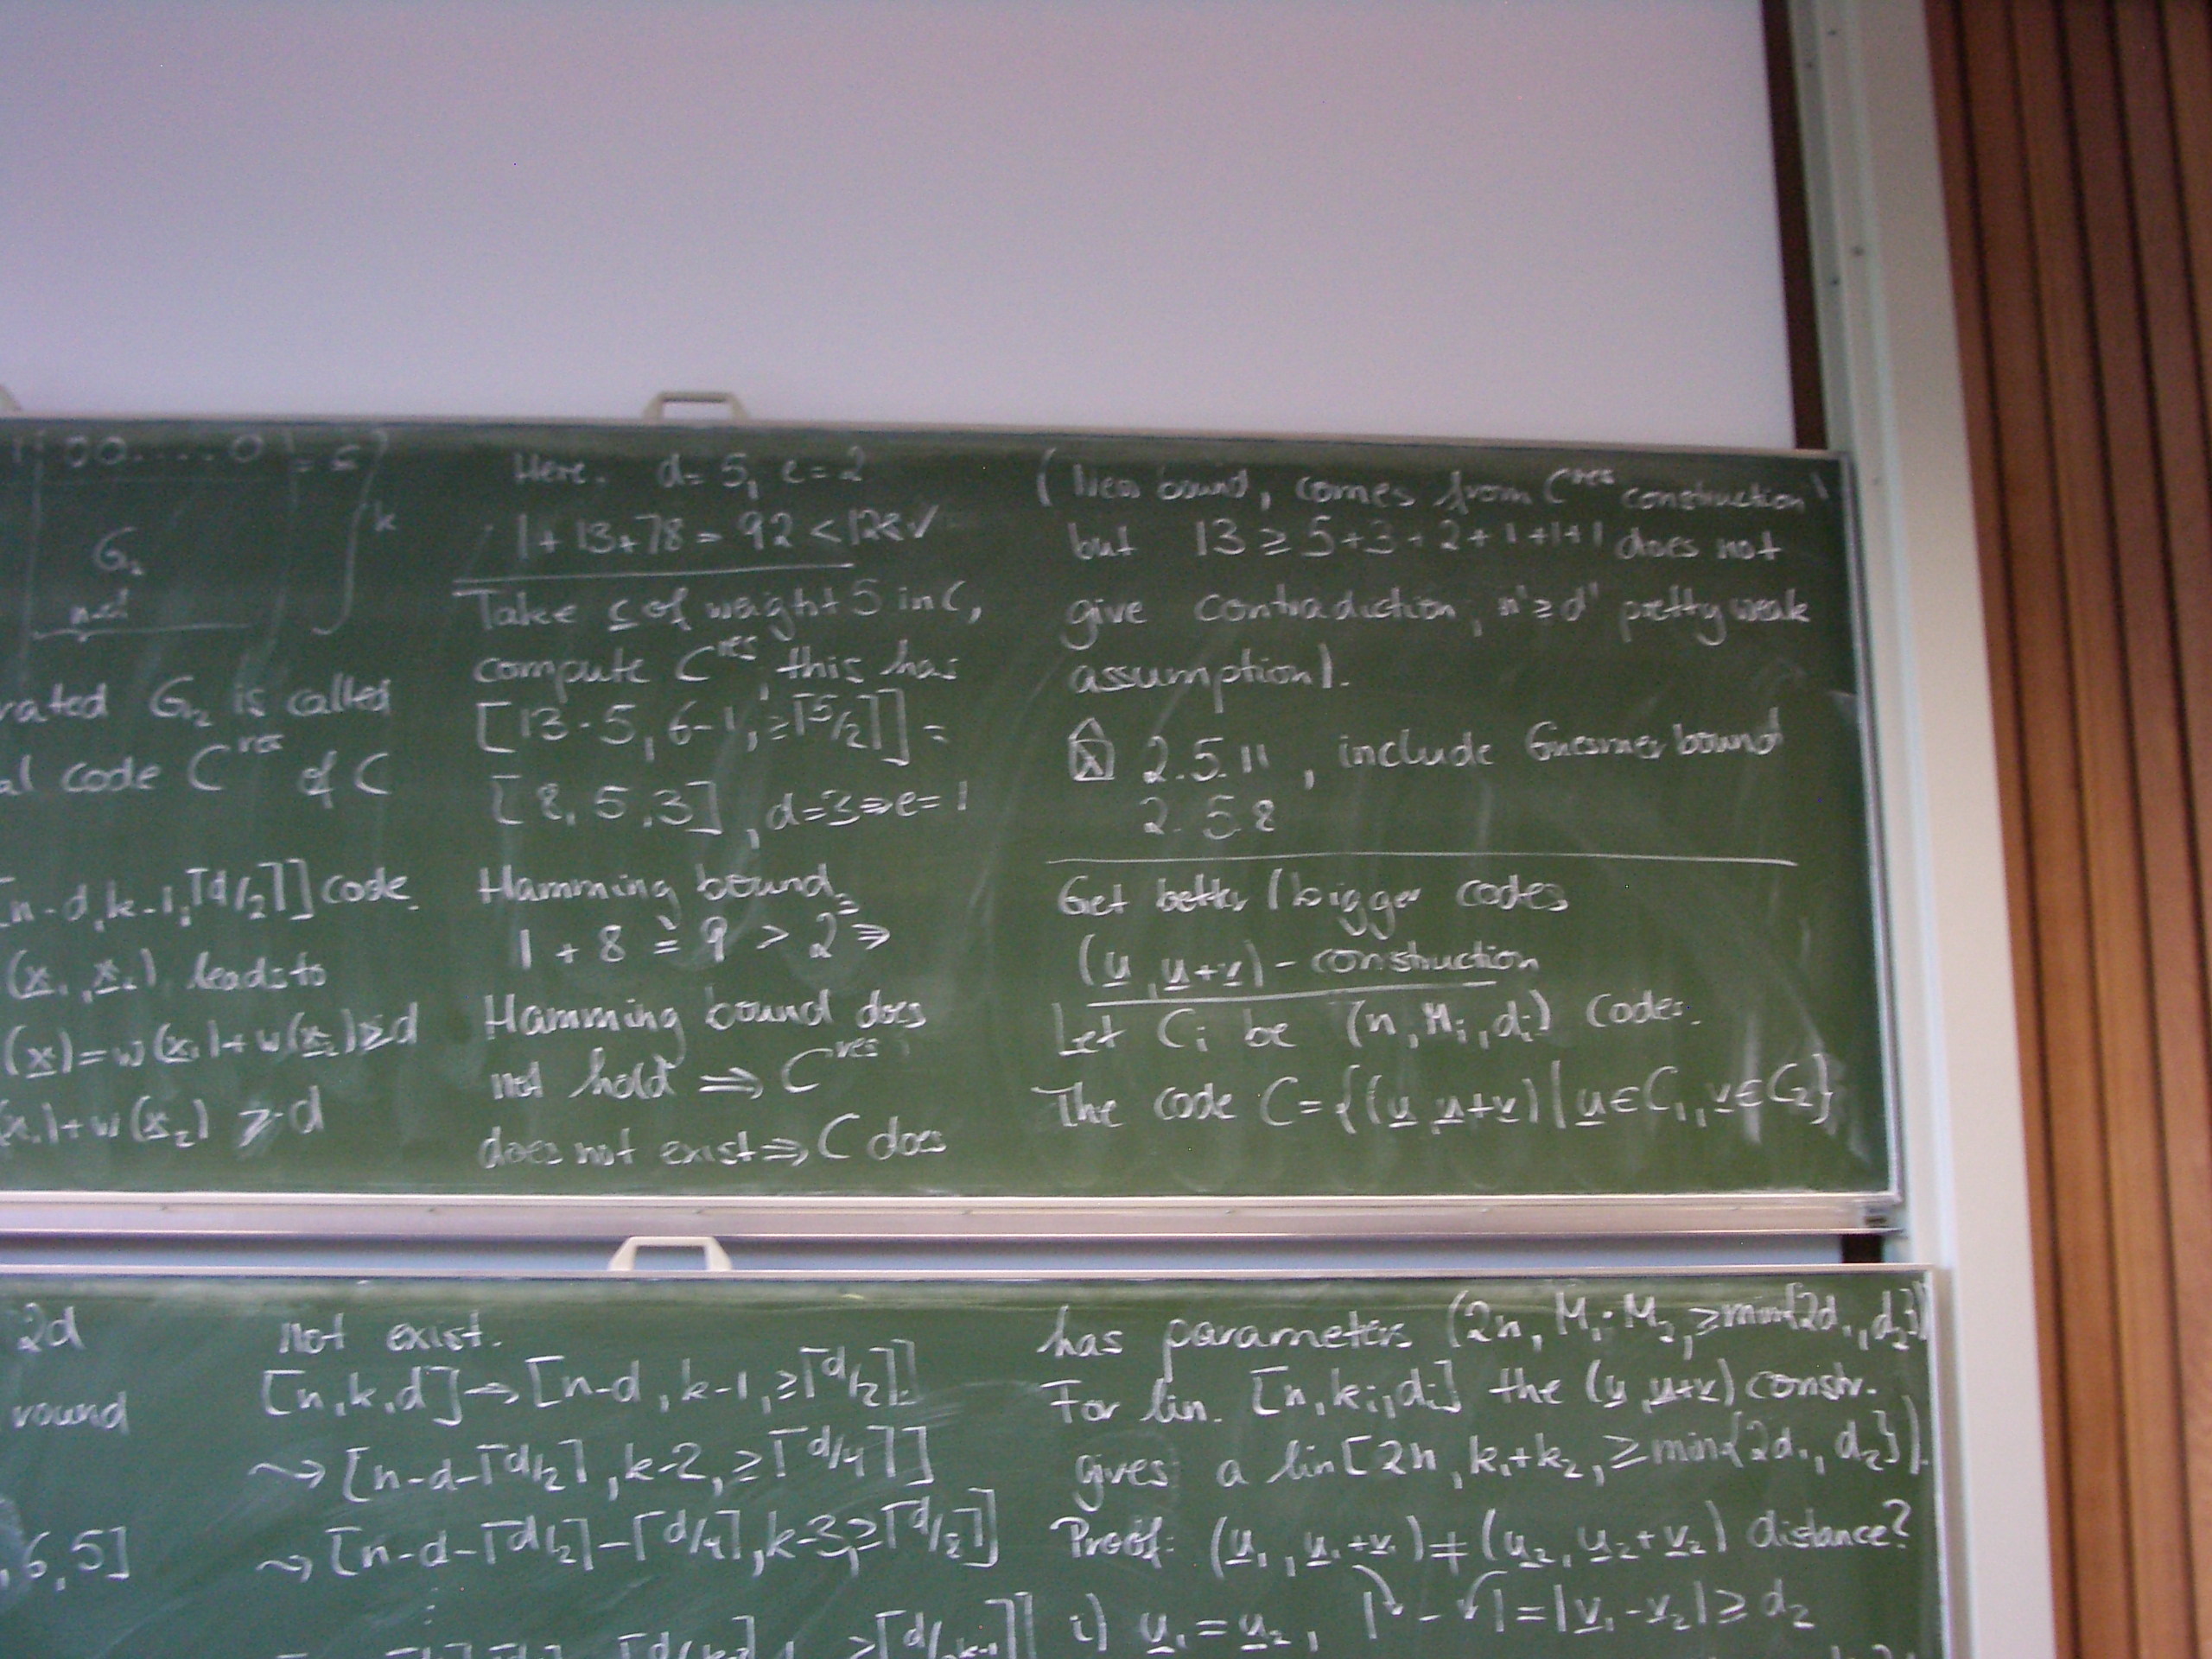 00....0 = c
G₂
k
n-d
rated G₂ is called
al code C^res of C
[n-d, k-1, ⌈d/2⌉] code.
(x₁, x₂), leads to
(x) = w(x₁) + w(x₂) ≥ d
(x₁) + w(x₂) ≥ d
Here. d = 5, e = 2
1 + 13 + 78 = 92 < 128 ✓
Take c of weight 5 in C,
compute C^res, this has
[13-5, 6-1, ≥⌈5/2⌉] =
[8, 5, 3], d=3 ⇒ e=1
Hamming bound:
1 + 8 = 9 > 2³ ⇒
Hamming bound does
not hold ⇒ C^res
does not exist ⇒ C does
(New bound, comes from C^res construction
but 13 ≥ 5+3+2+1+1+1 does not
give contradiction, n' ≥ d' pretty weak
assumption).
2.5.11, include Griesmer bound
2.5.8
Get better / bigger codes
(u, u+v) - construction
Let C_i be (n, M_i, d_i) codes.
The code C = {(u, u+v) | u ∈ C₁, v ∈ C₂}
2d
round
, 6, 5]
not exist.
[n, k, d] → [n-d, k-1, ≥⌈d/2⌉]
⇝ [n-d-⌈d/2⌉, k-2, ≥⌈d/4⌉]
⇝ [n-d-⌈d/2⌉-⌈d/4⌉, k-3, ≥⌈d/8⌉]
⋮
has parameters (2n, M₁·M₂, ≥min{2d₁, d₂})
For lin. [n, k_i, d_i] the (u, u+v) constr.
gives a lin [2n, k₁+k₂, ≥min{2d₁, d₂}]).
Proof: (u₁, u₁+v₁) ≠ (u₂, u₂+v₂) distance?
i) u₁ = u₂, | - | = |v₁ - v₂| ≥ d₂